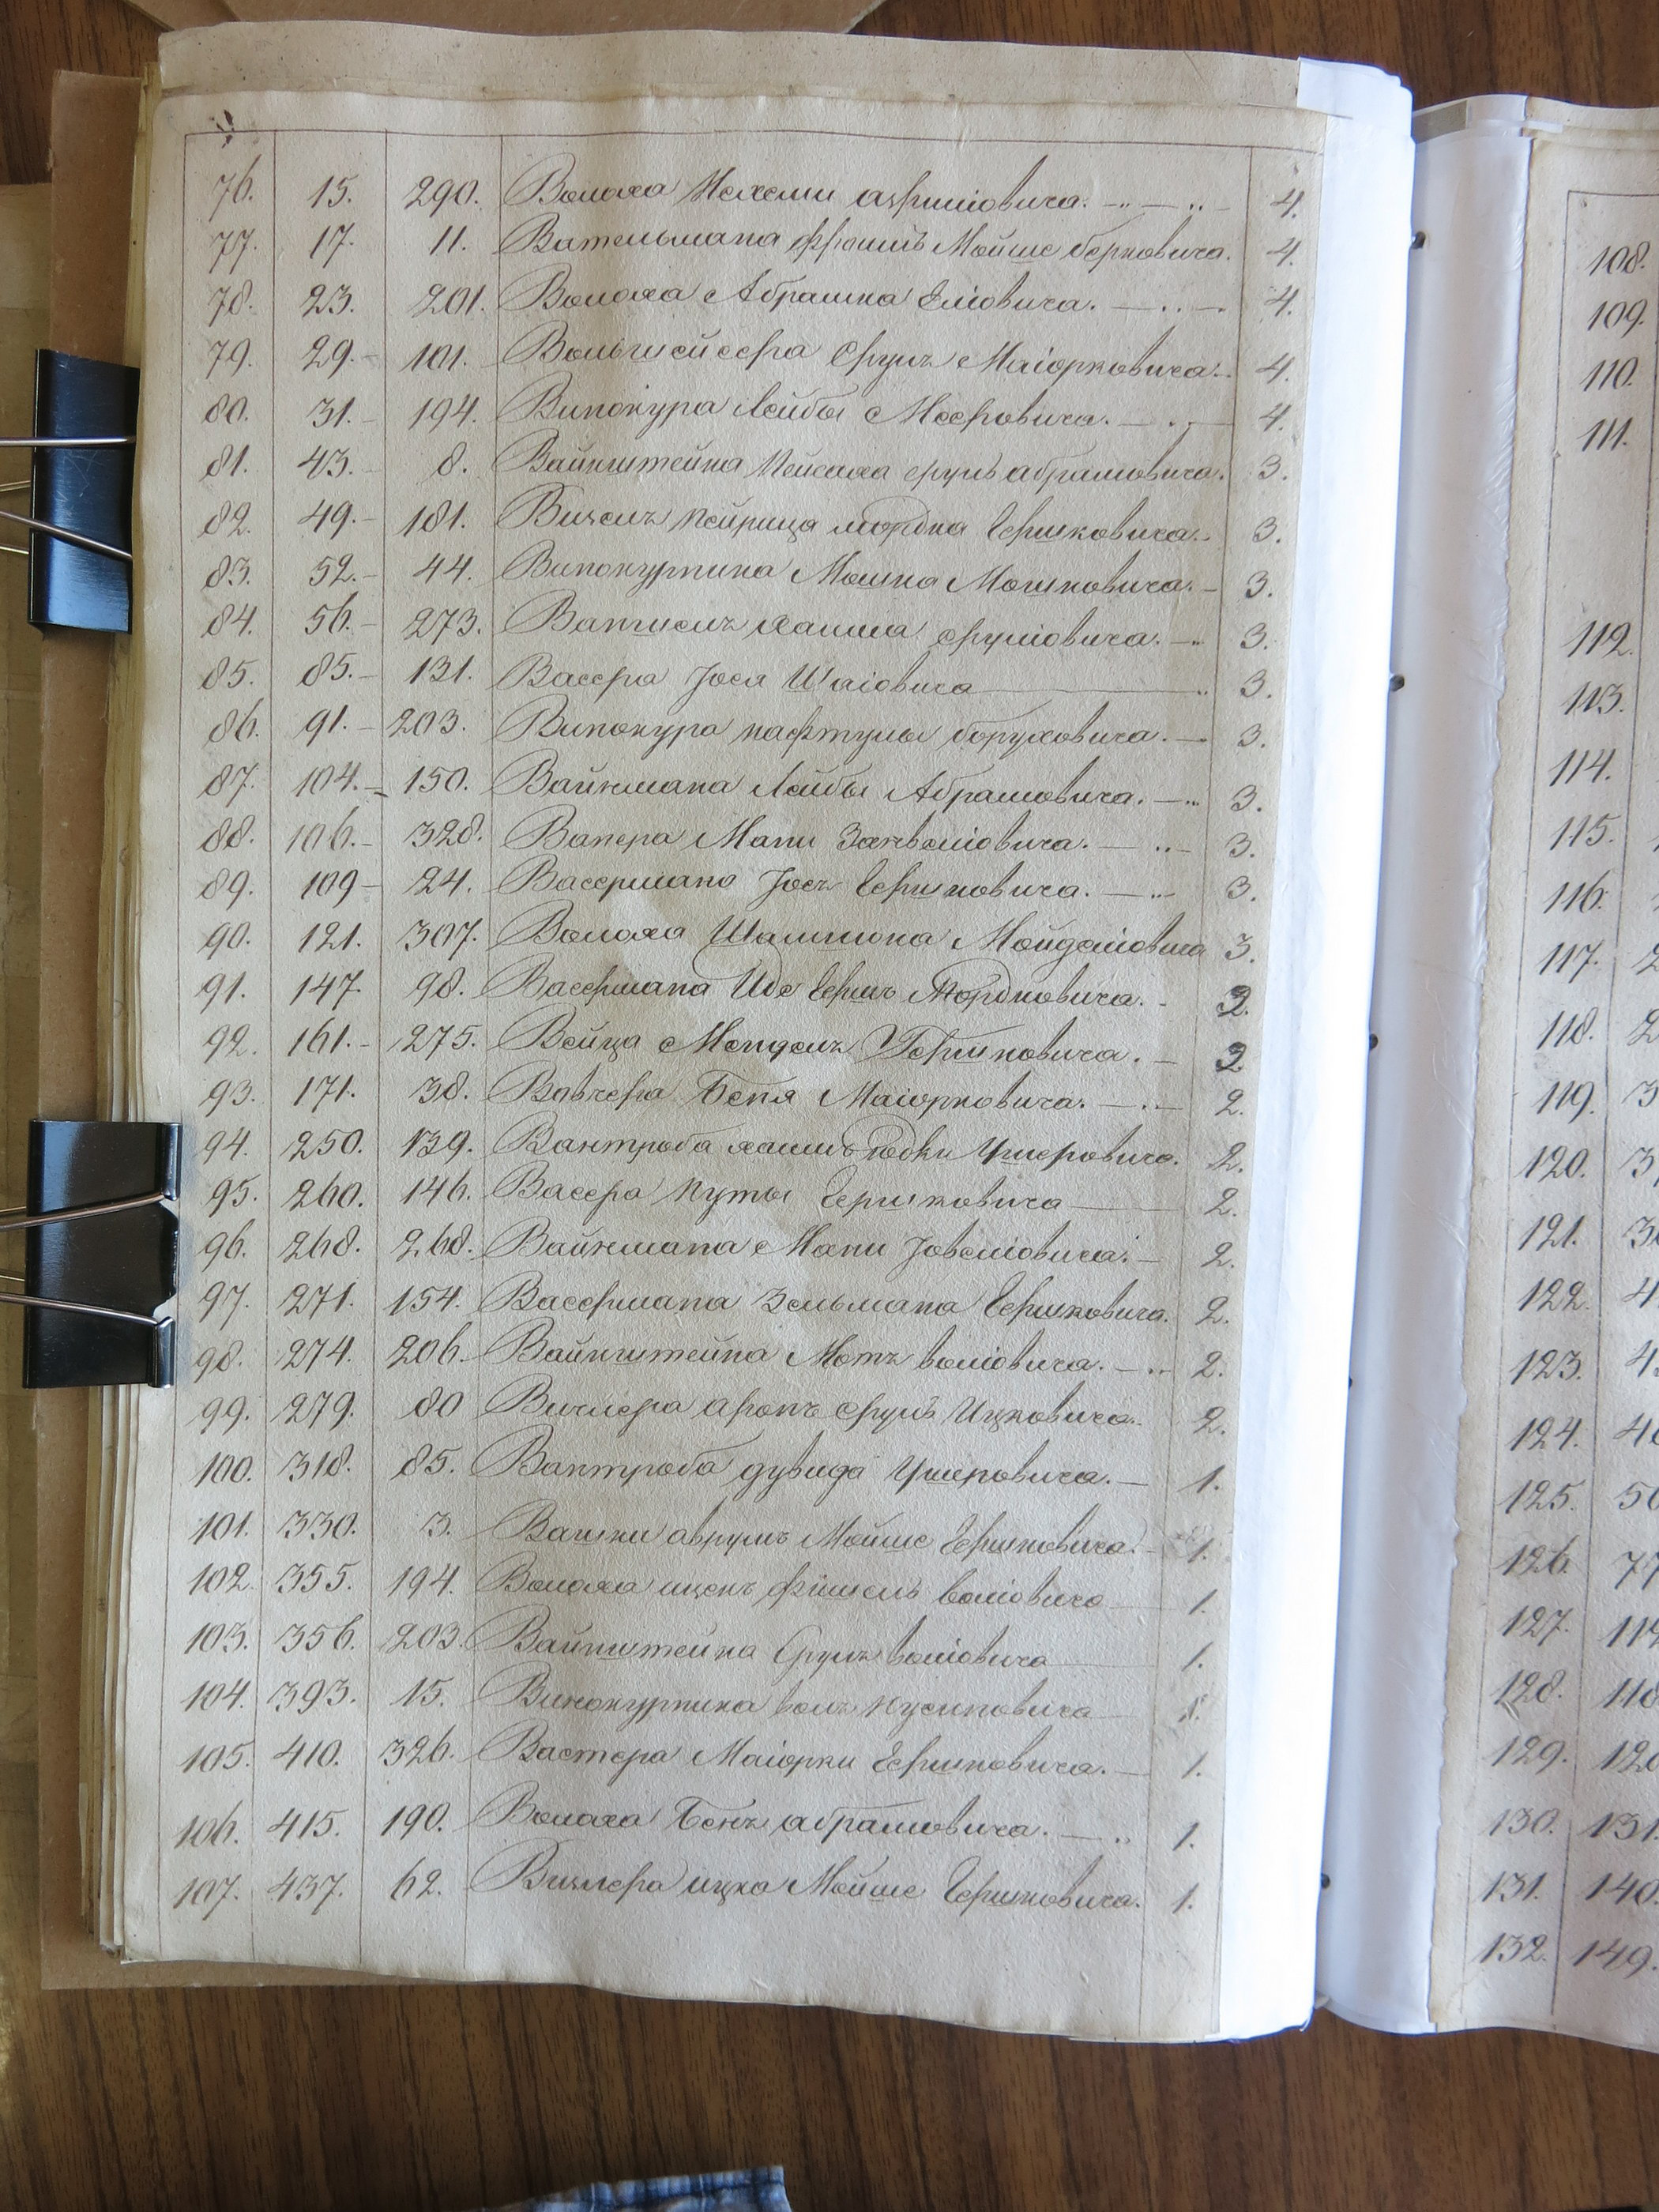 76. 15. 290. Волоха Нехеми Азриліовича. 4.
77. 17. 11. Вательмана Фроимъ Мойше Берковича. 4.
78. 23. 201. Волоха Абрашка Еліовича. 4.
79. 29. 101. Вольгисейсера Сруль Маіорковича. 4.
80. 31. 194. Винокура Лейбы Мееровича. 4.
81. 43. 8. Вайнштейна Пейсаха Срулъ Абрамовича. 3.
82. 49. 181. Мордка Гершковича. 3.
83. 52. 44. Винокурника Мошка Мошковича. 3.
84. 56. 273. Хаима Сруліовича. 3.
85. 85. 131. Вассера Іося Шаіовича 3.
86. 91. 203. Винокура Нафтулы Боруховича. 3.
87. 104. 150. Вайнмана Лейбы Абрамовича. 3.
88. 106. 328. Вакера Мани Занвеліовича. 3.
89. 109 24. Вассермана Іось Гершковича. 3.
90. 121. 307. Волоха Шлиомона 3.
91. 147. 98. Вассермана Иде Гершъ Мордковича. 2.
92. 161. 275. Вейца Мендель Гершковича. 2.
93. 171. 38. Беня Маіорковича. 2.
94. 250. 139. Вантроба Хаимъ Юдки Ушеровича. 2.
95. 260. 146. Вассера Нуты Гершковича 2.
96. 268. 268. Вайнмана Мани Іовеліовича. 2.
97. 271. 154. Вассермана Зельмана Гершковича. 2.
98. 274. 206. Вайнштейна Моть Воліовича. 2.
99. 279. 80 Аронъ Срулъ Ицковича. 2.
100. 318. 85. Вантроба Дувида Ушеровича. 1.
101. 330. 3. Аврумъ Мойше Гершковича. 1.
102. 355. 194. Волоха Иценъ Фишелъ Воліовича 1.
103. 356. 203. Вайнштейна Сруль Воліовича 1.
104. 393. 15. Винокурника Воль Нусиновича 1.
105. 410. 326. Вастера Маіорки Гершковича. 1.
106. 415. 190. Волоха Абрамовича. 1.
107. 437. 62. Ицко Мойше Гершковича. 1.
108.
109.
110.
111.
112.
113.
114.
115.
116.
117.
118.
119.
120.
121.
122.
123.
124.
125.
126.
127.
128.
129.
130. 131.
131. 140.
132. 149.